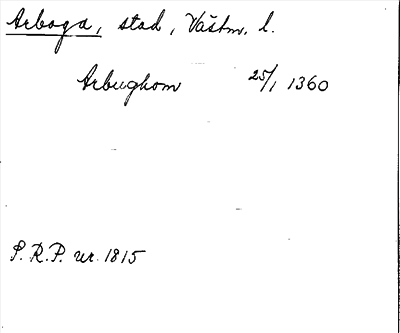 Arboga, stad, Västm. l.
Arbughom 25/1 1360
S.R.P. nr. 1815